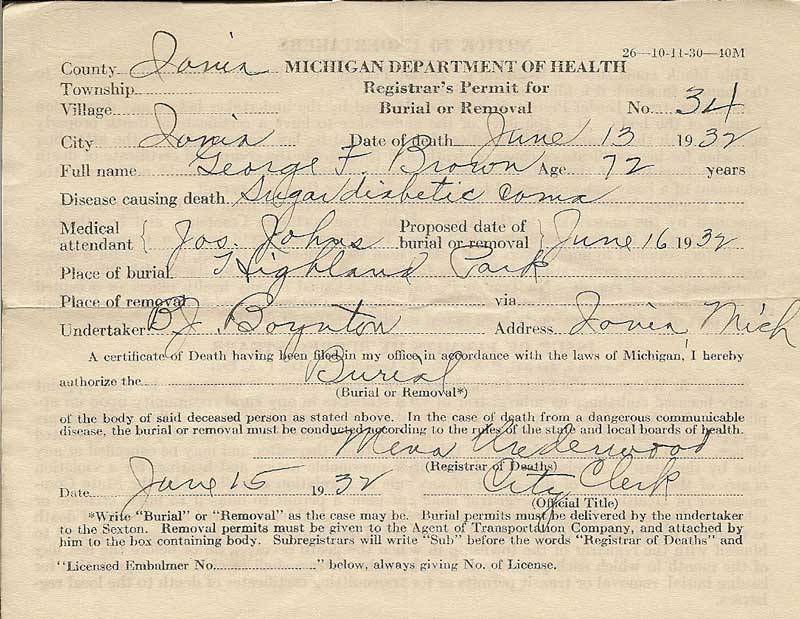 26—10-11-30—40M
County Ionia MICHIGAN DEPARTMENT OF HEALTH
Township Registrar's Permit for
Village Burial or Removal No. 34
City Ionia Date of death June 13 1932
Full name George F. Brown Age 72 years
Disease causing death Sugar diabetic coma
Medical attendant { Jos. Johns Proposed date of burial or removal } June 16 1932
Place of burial Highland Park
Place of removal via
Undertaker B.J. Boynton Address Ionia Mich
A certificate of Death having been filed in my office in accordance with the laws of Michigan, I hereby
authorize the Burial
(Burial or Removal*)
of the body of said deceased person as stated above. In the case of death from a dangerous communicable
disease, the burial or removal must be conducted according to the rules of the state and local boards of health.
Meva Underwood
(Registrar of Deaths)
Date June 15 1932 City Clerk
(Official Title)
*Write "Burial" or "Removal" as the case may be. Burial permits must be delivered by the undertaker
to the Sexton. Removal permits must be given to the Agent of Transportation Company, and attached by
him to the box containing body. Subregistrars will write "Sub" before the words "Registrar of Deaths" and
"Licensed Embalmer No." below, always giving No. of License.